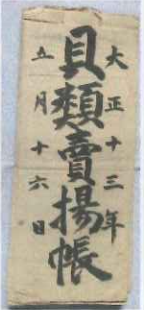 大正十三年
貝類賣揚帳
五月十六日